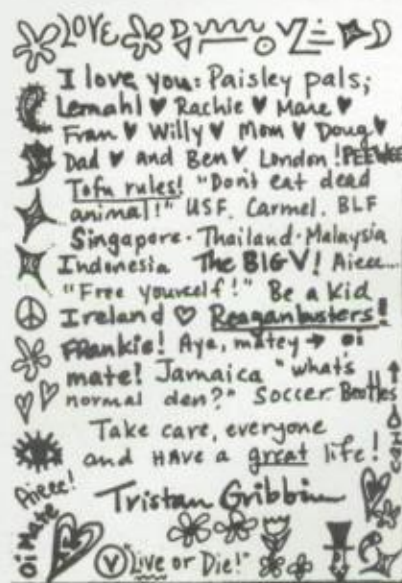 LOVE
I love you: Paisley pals;
Lemahl ♥ Rachie ♥ Mare ♥
Fran ♥ Willy ♥ Mom ♥ Doug ♥
Dad ♥ and Ben ♥ London! PEEWEE
Tofu rules! "Don't eat dead
animal!" USF. Carmel. BLF
Singapore · Thailand · Malaysia
Indonesia The BIG V! Aieee...
"Free yourself!" Be a Kid
Ireland ♡ Reaganbusters!
Frankie! Aya, matey → oi
mate! Jamaica "what's
normal den?" Soccer Beatles
Take care, everyone
and HAVE a great life!
Aieee!
Oi Mate
Tristan Gribbin
V "Live or Die!"